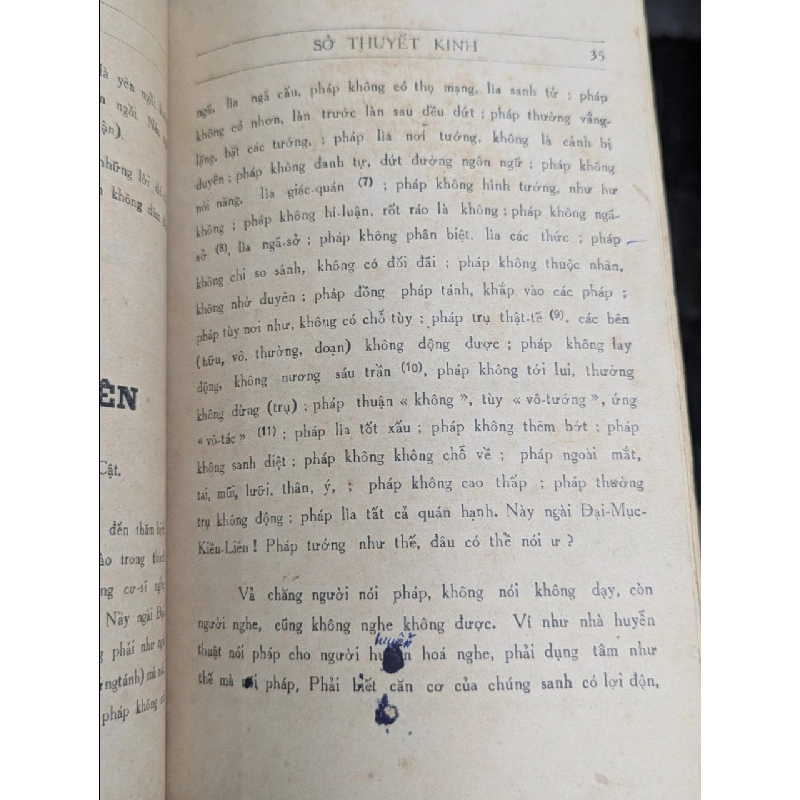 là yên ngồi,
ngồi.
những lời
không dám
ÊN
Cật.
đến thăm bịnh
ào trong thuở
cư-sĩ
Này ngài Đại
phải như
ngtánh) mà
pháp không
SỞ THUYẾT KINH
35
ngã, lìa ngã cấu, pháp không có thọ mạng, lìa sanh tử ; pháp
không có nhơn, làn trước làn sau đều dứt ; pháp thường vắng-
lặng, bặt các tướng, ; pháp lìa nơi tướng, không là cảnh bị
duyên ; pháp không danh tự, dứt đường ngôn ngữ ; pháp không
nói năng, lìa giác-quán (7) ; pháp không hình tướng, như hư
không ; pháp không hí-luận, rốt ráo là không ; pháp không ngã-
sở (8), lìa ngã-sở ; pháp không phân biệt, lìa các thức ; pháp
không chi so sánh, không có đối đãi ; pháp không thuộc nhân,
không nhờ duyên ; pháp đồng pháp tánh, khắp vào các pháp ;
pháp tùy nơi như, không có chỗ tùy ; pháp trụ thật-tế (9), các bên
(hữu, vô, thường, đoạn) không động được ; pháp không lay
động, không nương sáu trần (10), pháp không tới lui, thường
không dừng (trụ) ; pháp thuận « không », tùy « vô-tướng », ứng
« vô-tác » (11) ; pháp lìa tốt xấu ; pháp không thêm bớt ; pháp
không sanh diệt ; pháp không không chỗ về ; pháp ngoài mắt,
tai, mũi, lưỡi, thân, ý, ; pháp không cao thấp ; pháp thường
trụ không động ; pháp lìa tất cả quán hạnh. Này ngài Đại-Mục-
Kiền-Liên ! Pháp tướng như thế, đâu có thể nói ư ?
Vả chăng người nói pháp, không nói không dạy, còn
người nghe, cũng không nghe không được. Ví như nhà huyễn
huyễn
thuật nói pháp cho người hoá nghe, phải dụng tâm như
thế mà nói pháp, Phải biết căn cơ của chúng sanh có lợi độn,